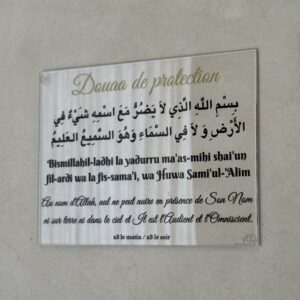 Douaa de protection
بِسْمِ اللَّهِ الَّذِي لاَ يَضُرُّ مَعَ اسْمِهِ شَيْءٌ فِي
الأَرْضِ وَ لاَ فِي السَّمَاءِ وَهُوَ السَّمِيعُ العَلِيمُ
Bismillahil-ladhi la yadurru ma'as-mihi shai'un
fil-ardi wa la fis-sama'i, wa Huwa Sami'ul-'Alim
Au nom d'Allah, nul ne peut nuire en présence de Son Nom
ni sur terre ni dans le ciel et Il est l'Audient et l'Omniscient.
x3 le matin / x3 le soir